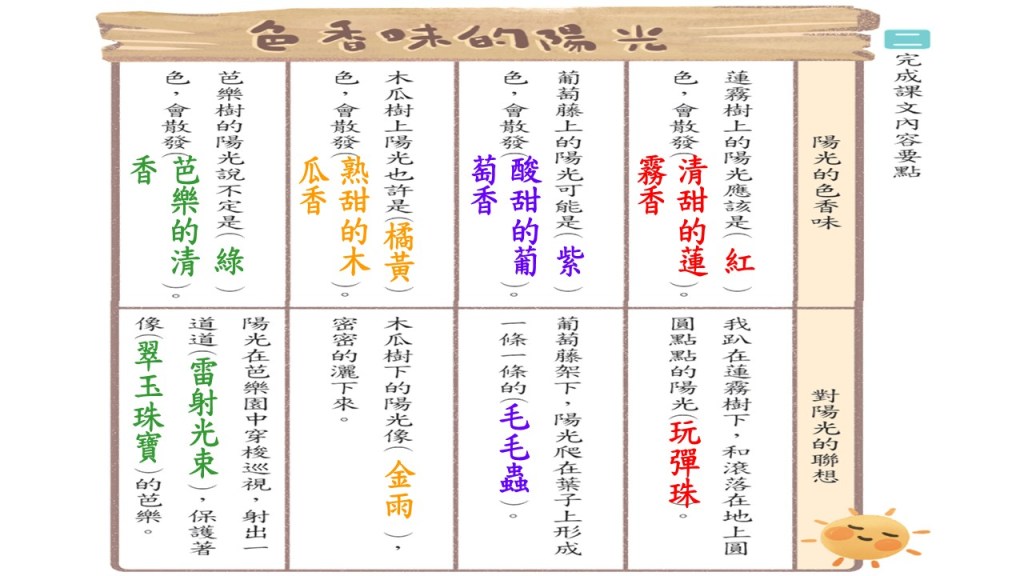 色香味的陽光
二
完成課文內容要點
陽光的色香味
蓮霧樹上的陽光應該是(紅)
色,會散發(清甜的蓮
霧香)。
葡萄藤上的陽光可能是(紫)
色,會散發(酸甜的葡
萄香)。
木瓜樹上陽光也許是(橘黃)
色,會散發(熟甜的木
瓜香)。
芭樂樹的陽光說不定是(綠)
色,會散發(芭樂的清
香)。
對陽光的聯想
我趴在蓮霧樹下,和滾落在地上圓
圓點點的陽光(玩彈珠)。
葡萄藤架下,陽光爬在葉子上形成
一條一條的(毛毛蟲)。
木瓜樹下的陽光像(金雨),
密密的灑下來。
陽光在芭樂園中穿梭巡視,射出一
道道(雷射光束),保護著
像(翠玉珠寶)的芭樂。